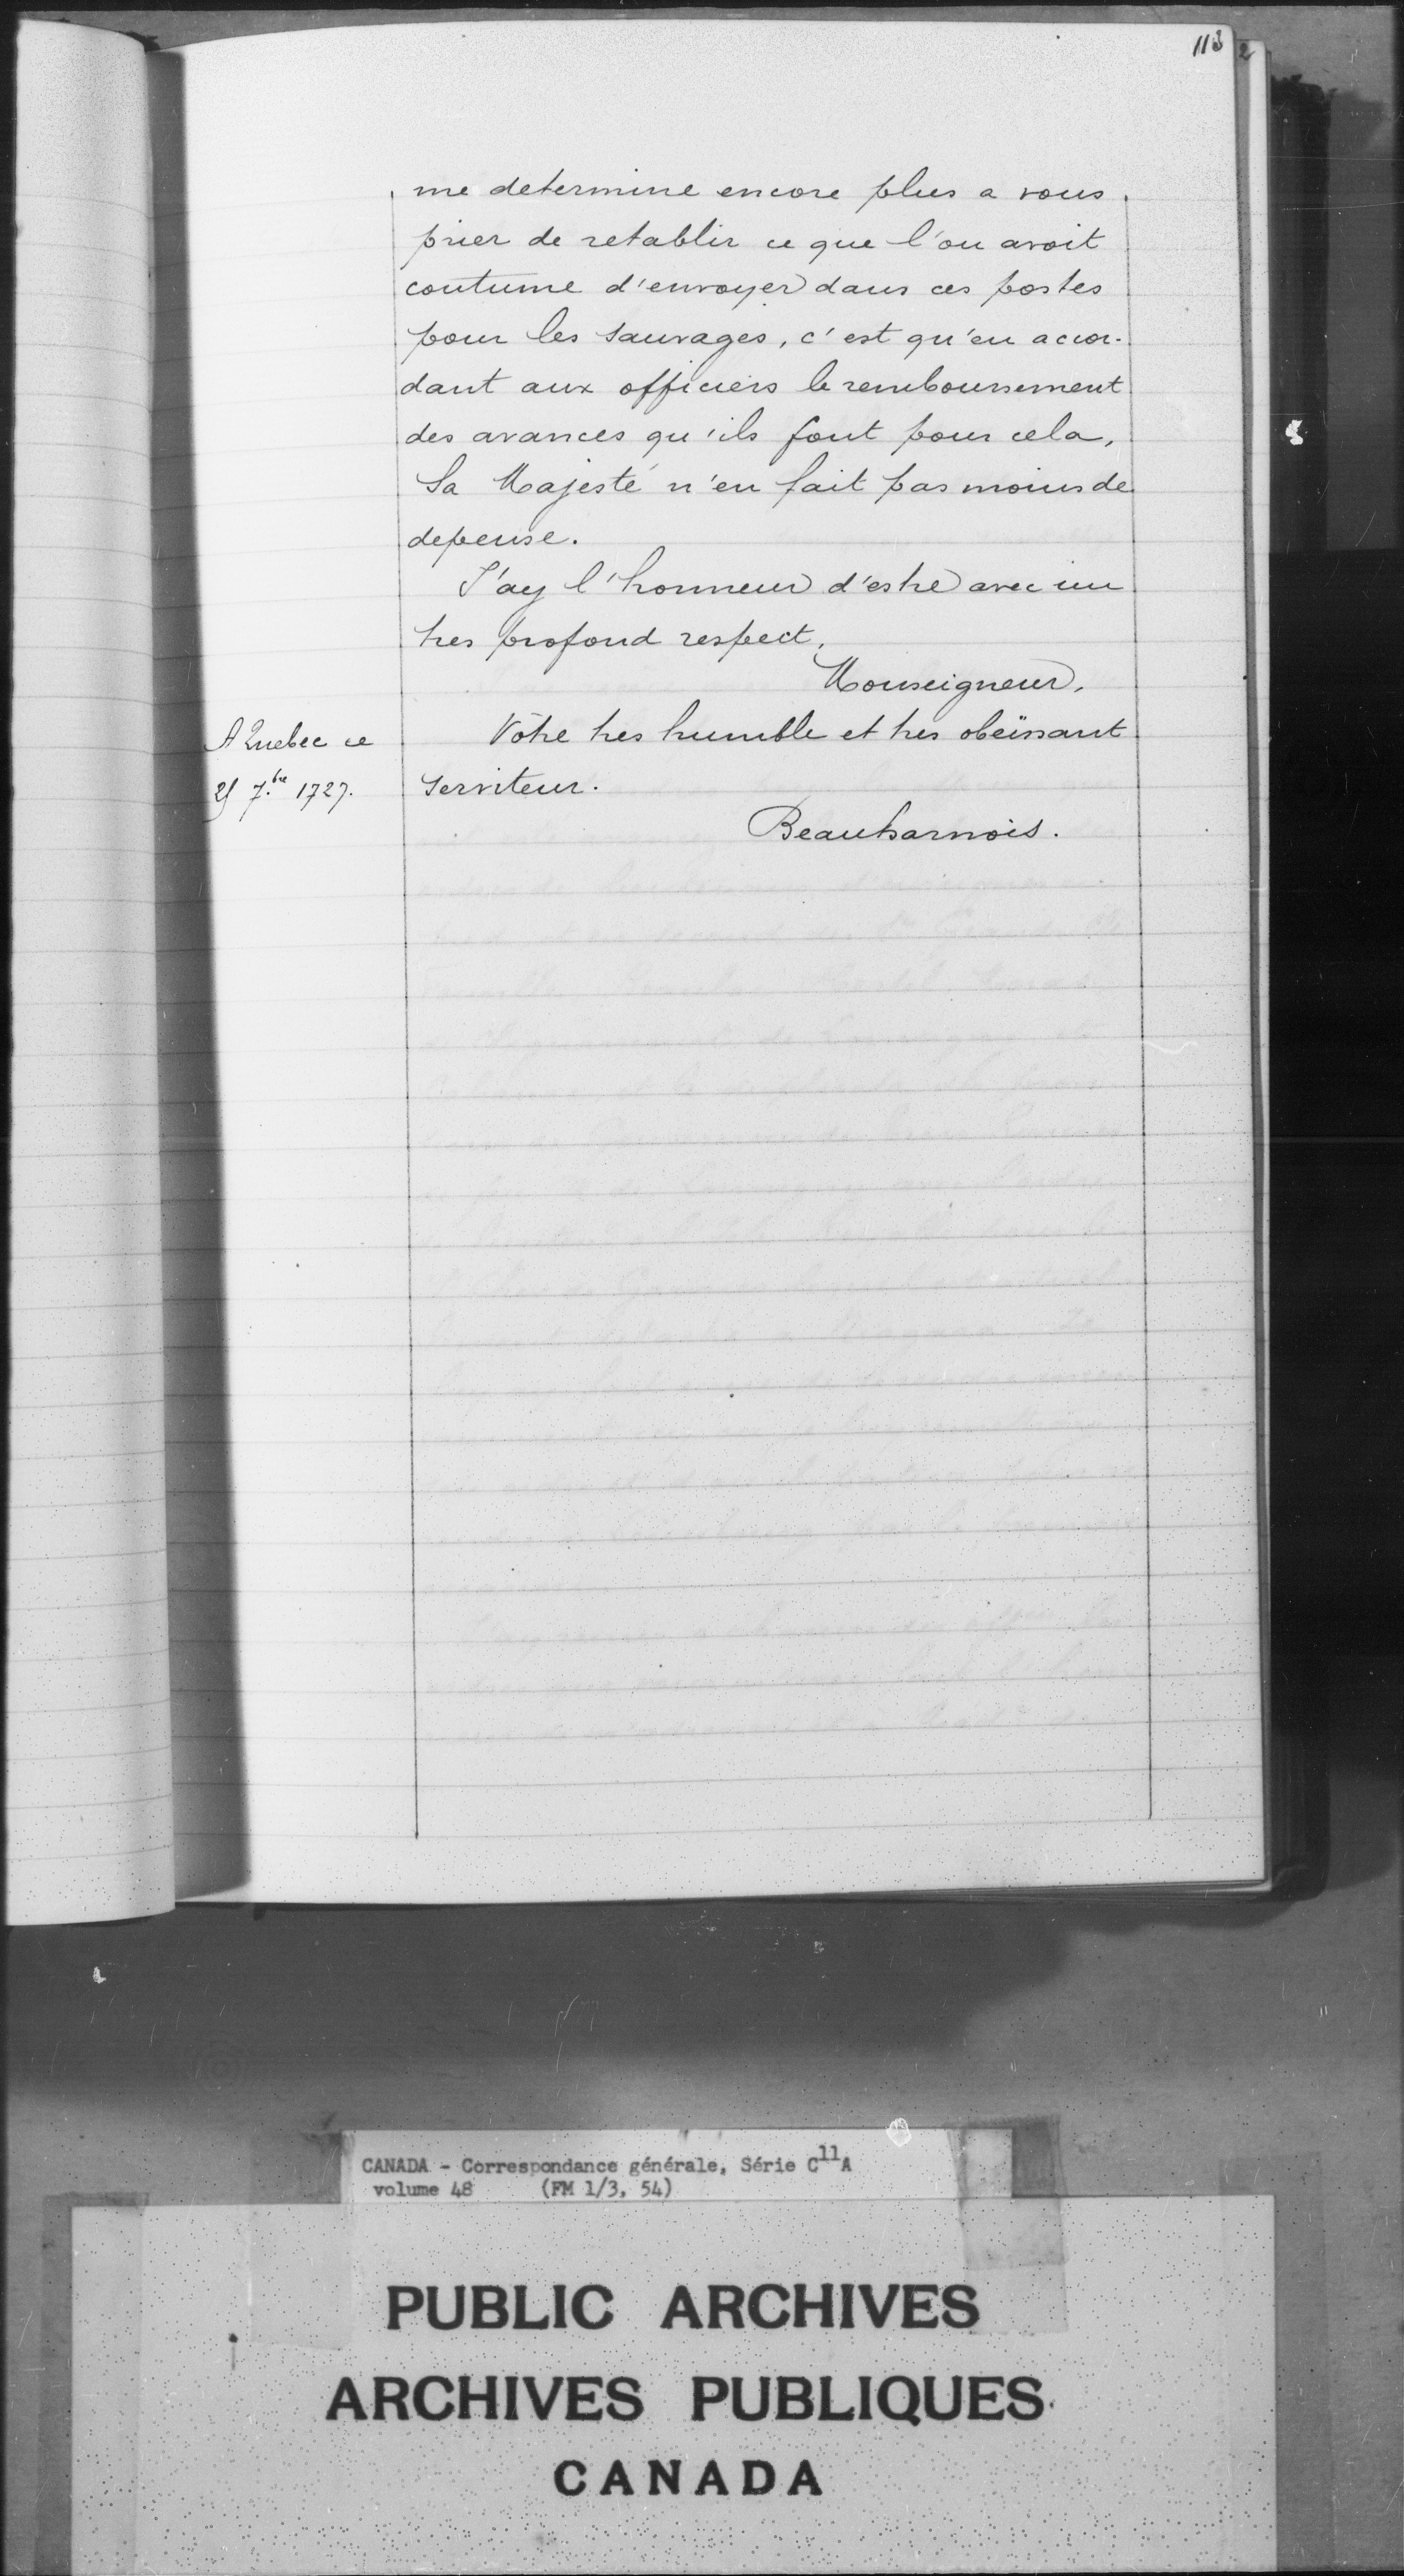 113
2
me determine encore plus a vous
prier de retablir ce que l'on avoit
coutume d'envoyer dans ces postes
pour les sauvages, c'est qu'en accor-
dant aux officiers le remboursement
des avances qu'ils font pour cela,
Sa Majesté n'en fait pas moins de
depense.
J'ay l'honneur d'estre avec un
tres profond respect,
Monseigneur,
A Quebec ce
Vôtre tres humble et tres obeïssant
7.bre 1727.
serviteur.
Beauharnois.
CANADA - Correspondance générale, Série C11A
volume 48 (FM 1/3, 54)
PUBLIC ARCHIVES
ARCHIVES PUBLIQUES
CANADA